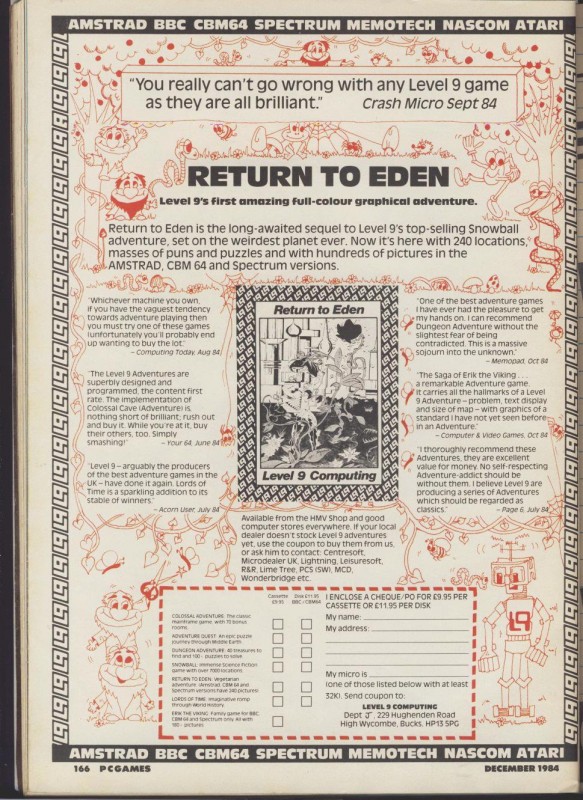 AMSTRAD BBC CBM64 SPECTRUM MEMOTECH NASCOM ATARI
"You really can't go wrong with any Level 9 game
as they are all brilliant." Crash Micro Sept 84
RETURN TO EDEN
Level 9's first amazing full-colour graphical adventure.
Return to Eden is the long-awaited sequel to Level 9's top-selling Snowball
adventure, set on the weirdest planet ever. Now it's here with 240 locations,
masses of puns and puzzles and with hundreds of pictures in the
AMSTRAD, CBM 64 and Spectrum versions.
'Whichever machine you own,
if you have the vaguest tendency
towards adventure playing then
you must try one of these games
(unfortunately you'll probably end
up wanting to buy the lot.'
– Computing Today, Aug 84
'The Level 9 Adventures are
superbly designed and
programmed, the content first
rate. The implementation of
Colossal Cave (Adventure) is
nothing short of brilliant; rush out
and buy it. While you're at it, buy
their others, too. Simply
smashing!' – Your 64, June 84
'Level 9 – arguably the producers
of the best adventure games in the
UK – have done it again. Lords of
Time is a sparkling addition to its
stable of winners.'
– Acorn User, July 84
Return to Eden
Level 9 Computing
'One of the best adventure games
I have ever had the pleasure to get
my hands on. I can recommend
Dungeon Adventure without the
slightest fear of being
contradicted. This is a massive
sojourn into the unknown.'
– Memopad, Oct 84
'The Saga of Erik the Viking ...
a remarkable Adventure game.
It carries all the hallmarks of a Level
9 Adventure – problem, text display
and size of map – with graphics of a
standard I have not yet seen before
in an Adventure.'
– Computer & Video Games, Oct 84
'I thoroughly recommend these
Adventures, they are excellent
value for money. No self-respecting
Adventure-addict should be
without them. I believe Level 9 are
producing a series of Adventures
which should be regarded as
classics.' – Page 6, July 84
Available from the HMV Shop and good
computer stores everywhere. If your local
dealer doesn't stock Level 9 adventures
yet, use the coupon to buy them from us,
or ask him to contact: Centresoft,
Microdealer UK, Lightning, Leisuresoft,
R&R, Lime Tree, PCS (SW), MCD,
Wonderbridge etc.
Cassette Disk £11.95
£9.95 BBC / CBM64
COLOSSAL ADVENTURE: The classic
mainframe game, with 70 bonus
rooms.
ADVENTURE QUEST: An epic puzzle
journey through Middle Earth.
DUNGEON ADVENTURE: 40 treasures to
find and 100+ puzzles to solve.
SNOWBALL: Immense Science Fiction
game with over 7000 locations.
RETURN TO EDEN: Vegetarian
adventure. (Amstrad, CBM 64 and
Spectrum versions have 240 pictures)
LORDS OF TIME: Imaginative romp
through World History.
ERIK THE VIKING: Family game for BBC,
CBM 64 and Spectrum only. All with
180+ pictures
I ENCLOSE A CHEQUE/PO FOR £9.95 PER
CASSETTE OR £11.95 PER DISK
My name:
My address:
My micro is
(one of those listed below with at least
32K). Send coupon to:
LEVEL 9 COMPUTING
Dept J 229 Hughenden Road
High Wycombe, Bucks. HP13 5PG
L9
AMSTRAD BBC CBM64 SPECTRUM MEMOTECH NASCOM ATARI
166 PCGAMES DECEMBER 1984